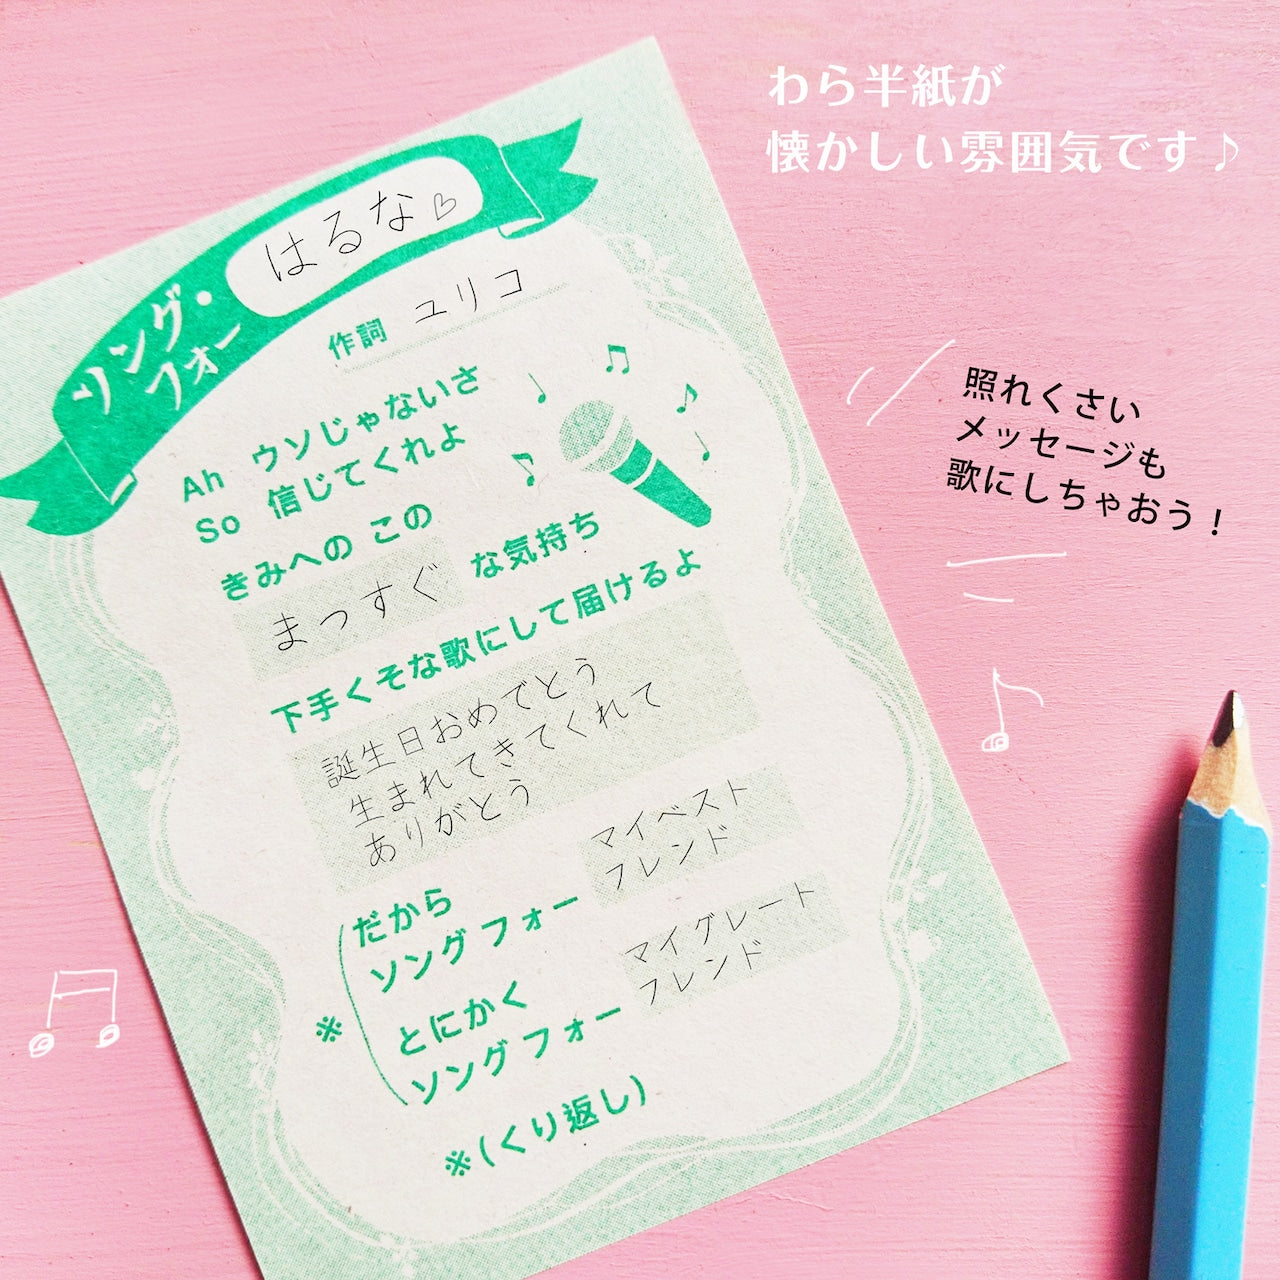 わら半紙が
懐かしい雰囲気です♪
ソング・フォー
はるな♡
作詞 ユリコ
Ah ウソじゃないさ
So 信じてくれよ
きみへの この
まっすぐ な気持ち
下手くそな歌にして届けるよ
誕生日おめでとう
生まれてきてくれて
ありがとう
だから
ソング フォー マイベスト
フレンド
※
とにかく
ソング フォー マイグレート
フレンド
※(くり返し)
照れくさい
メッセージも
歌にしちゃおう!